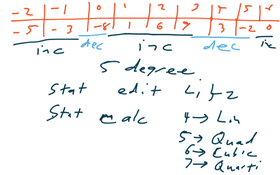 -2 -1 0 1 2 3 5 5
-5 -3 -8 1 6 9 3 -2 0
inc dec inc dec inc
5 degree
Stat edit L1 L2
Stat calc 4→Lin
5→Quad
6→Cubic
7→Quarti